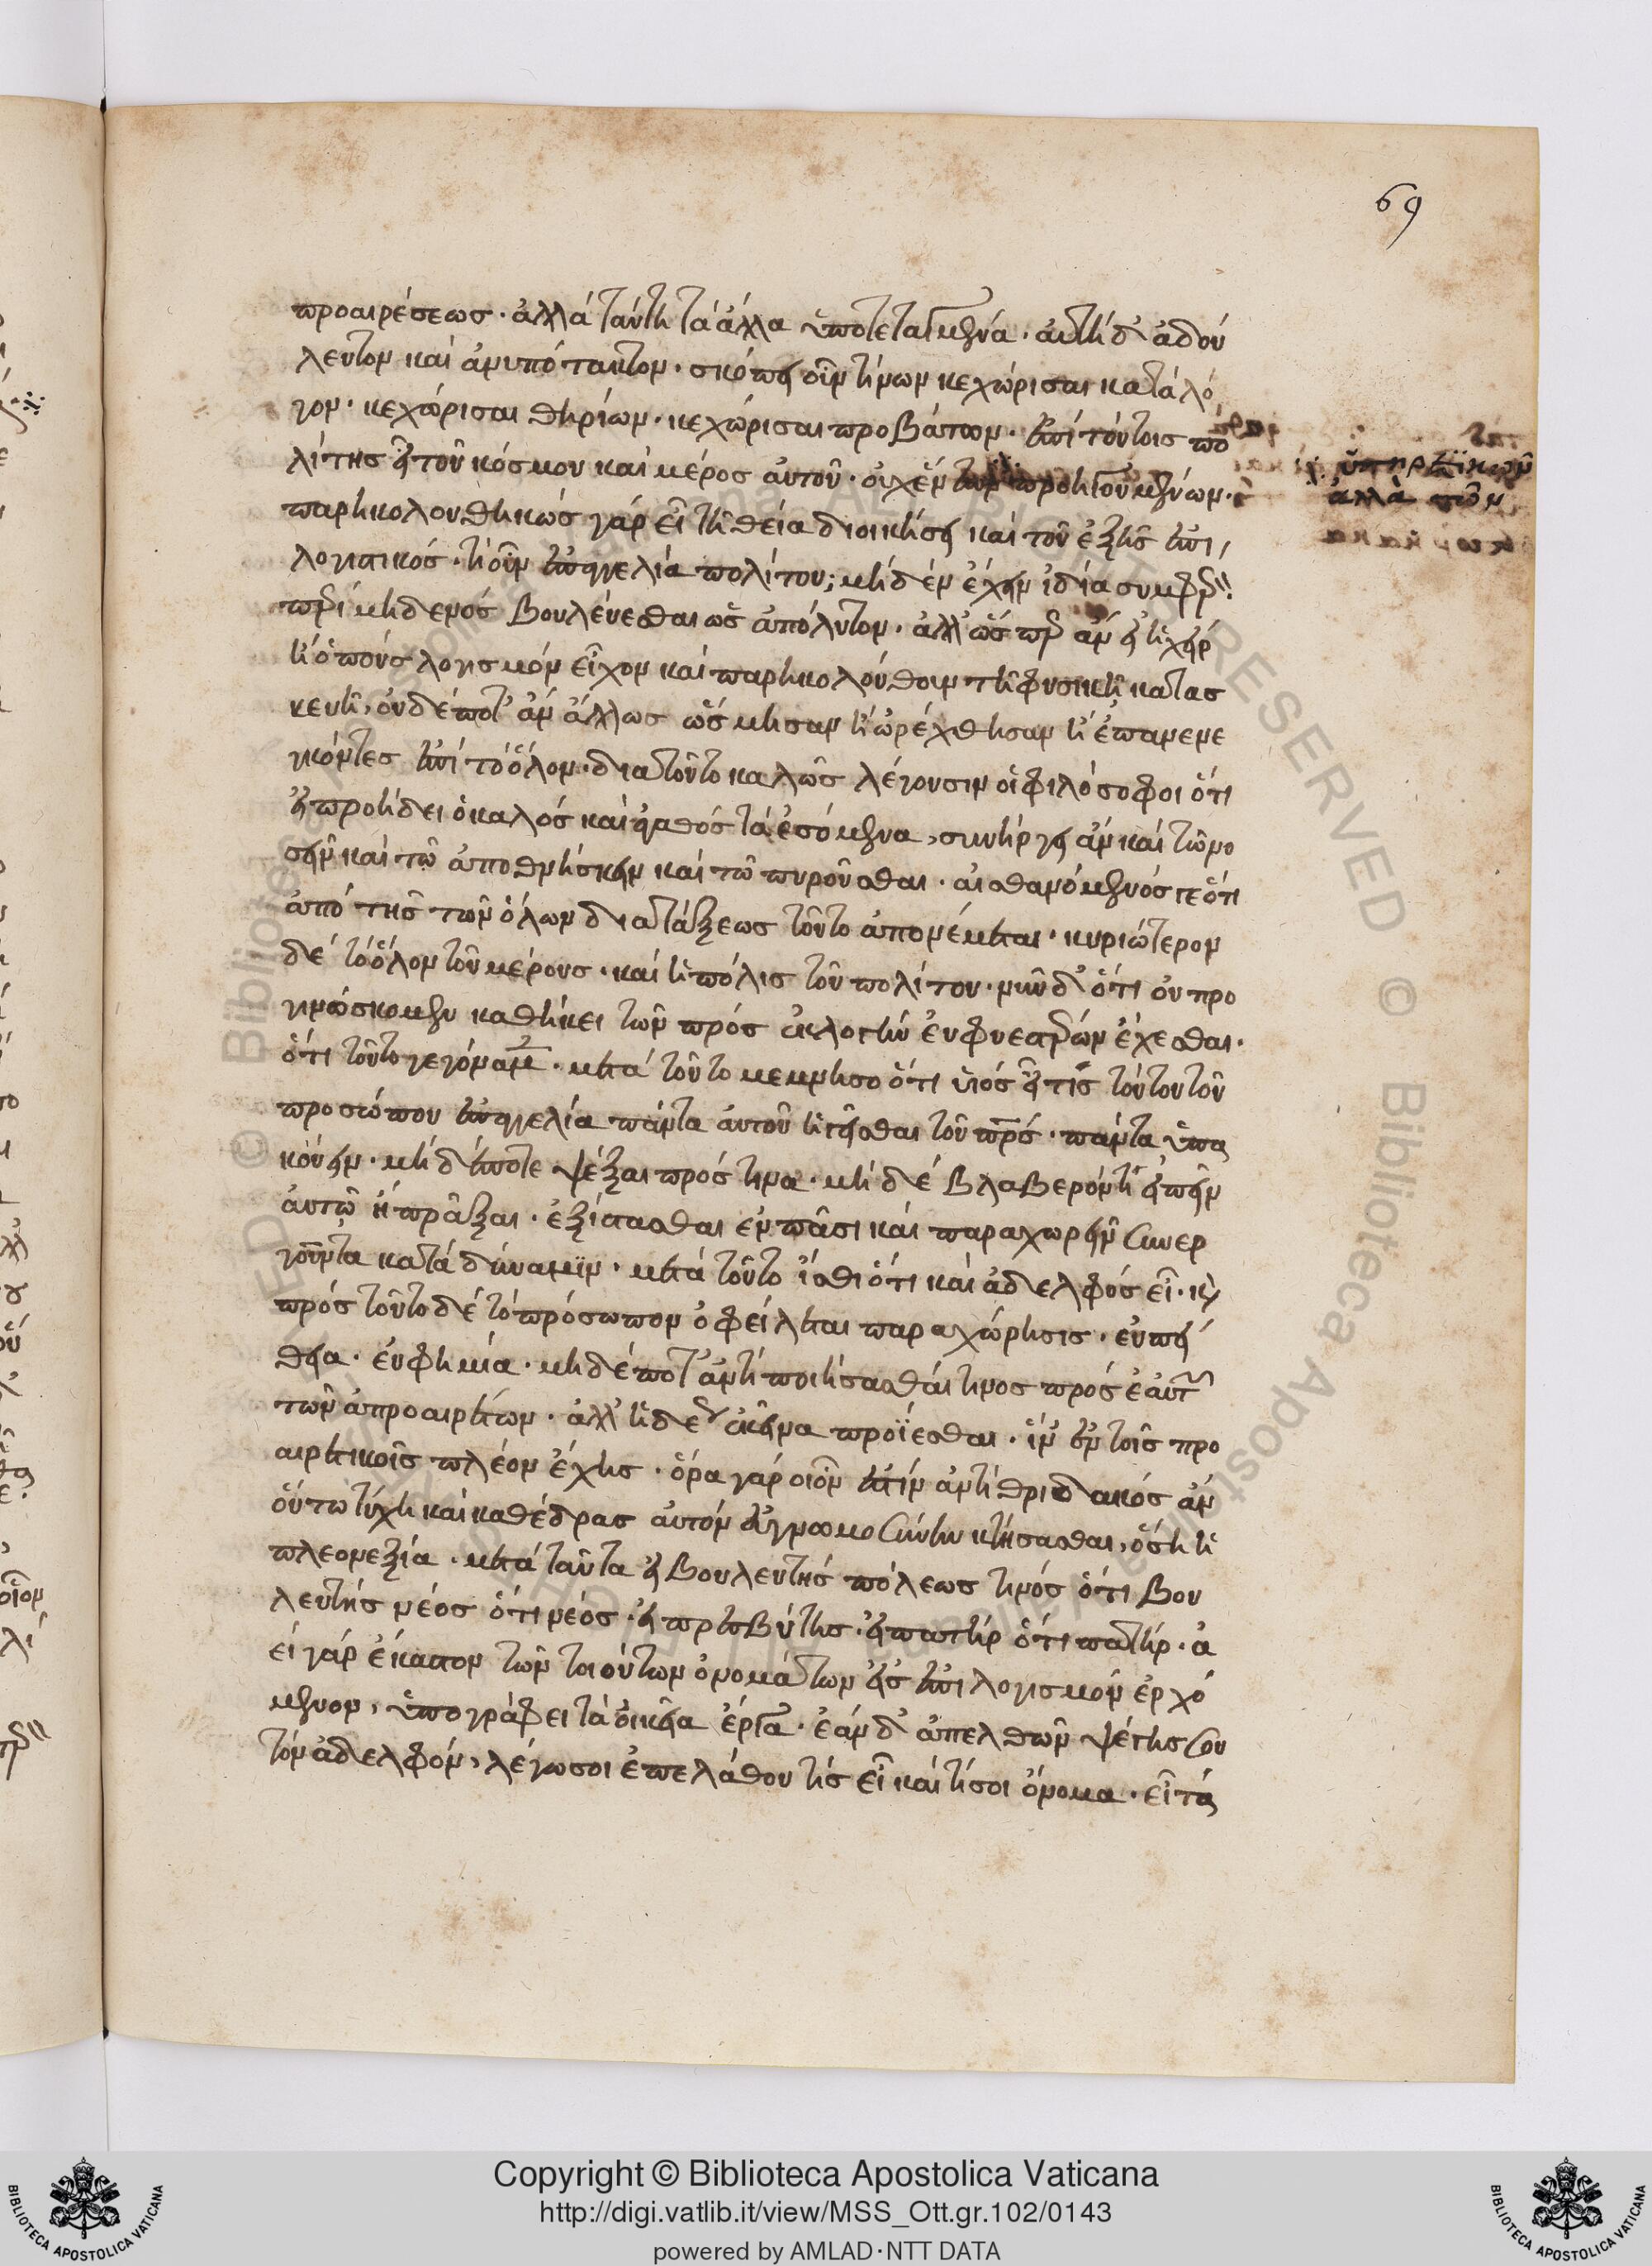 69
προαιρέσεως · ἀλλά ταύτη τὰ ἄλλα ὑποτεταγμένα · αὐτή δ' ἀδού
λευτον καὶ ἀνυπότακτον · σκόπει οὖν τίνων κεχώρισαι κατὰ λό
γον · κεχώρισαι θηρίων · κεχώρισαι προβάτων · ἐπί τούτοις πο
λίτης εἶ τοῦ κόσμου καὶ μέρος αὐτοῦ · οὐχ ἕν τῶν προηγουμένων ·
ὑπηρετικῶν
ἀλλὰ τῶν
παρηκολουθηκώς γάρ εἶ τῆ θεία διοικήσει καὶ τοῦ ἑξῆς ἐπι
λογιστικός · τί οὖν ἐπαγγελία πολίτου; μηδέν ἔχειν ἰδία συμφέρον
περί μηδενός βουλεύεσθαι ὡς ἀπόλυτον · ἀλλ' ὥσπερ ἄν εἰ ἡ χείρ
ἤ ὁ πούς λογισμόν εἶχον καὶ παρηκολούθουν τῆ φυσικῆ κατασ
κευῆ, οὐδέποτ' ἄν ἄλλως ὥρμησαν ἤ ὠρέχθησαν ἤ ἐπανενε
γκόντες ἐπί τό ὅλον · διὰ τοῦτο καλῶς λέγουσιν οἱ φιλόσοφοι ὅτι
εἰ προήδει ὁ καλός καὶ ἀγαθός τὰ ἐσόμενα, συνήργει ἄν καὶ τῶ νο
σεῖν καὶ τῶ ἀποθνήσκειν καὶ τῶ πηροῦσθαι · αἰσθανόμενός γε ὅτι
ἀπό τῆς τῶν ὅλων διατάξεως τοῦτο ἀπονέμεται · κυριώτερον
δέ τό ὅλον τοῦ μέρους · καὶ ἡ πόλις τοῦ πολίτου · νῦν δ' ὅτι οὐ προ
γινώσκομεν καθήκει τῶν πρός ἐκλογήν εὐφυεστέρων ἔχεσθαι ·
ὅτι τοῦτο γεγόναμεν · μετά τοῦτο μέμνησο ὅτι υἱός εἶ τίς τούτου τοῦ
προσώπου ἐπαγγελία πάντα αὐτοῦ ἡγεῖσθαι τοῦ πρς · πάντα ὑπα
κούειν · μηδέποτε ψέξαι πρός τινα · μηδέ βλαβερόν τι εἰπεῖν
αὐτῶ ἤ πρᾶξαι · ἐξίστασθαι ἐν πᾶσι καὶ παραχωρεῖν συνερ
γοῦντα κατά δύναμιν · μετά τοῦτο ἴσθι ὅτι καὶ ἀδελφός εἶ · καὶ
πρός τοῦτο δέ τό πρόσωπον ὀφείλεται παραχώρησις · εὐπεί
θεια · εὐφημία · μηδέποτ' ἀντιποιήσασθαί τινος πρός ἑαυτόν
τῶν ἀπροαιρέτων · ἀλλ' ἡδέως ἐκεῖνα προΐεσθαι · ἵν' ἐν τοῖς προ
αιρετικοῖς πλέον ἔχης · ὅρα γάρ οἷόν ἐστιν ἀντί θριδακός ἄν
οὕτω τύχη καὶ καθέδρας αὐτόν εὐγνωμοσύνην κτήσασθαι, ὅση ἡ
πλεονεξία · μετά ταῦτα εἰ βουλευτής πόλεως τινός ὅτι βου
λευτής νέος ὅτι νέος · εἰ πρεσβύτης · εἰ πατήρ ὅτι πατήρ · ἀ
εί γάρ ἕκαστον τῶν τοιούτων ὀνομάτων εἰς ἐπιλογισμόν ἐρχό
μενον, ὑπογράφει τὰ οἰκεῖα ἔργα · ἐάν δ' ἀπελθών ψέγης σου
τόν ἀδελφόν, λέγω σοι ἐπελάθου τίς εἶ καὶ τί σοι ὄνομα · εἶτα
Copyright © Biblioteca Apostolica Vaticana
http://digi.vatlib.it/view/MSS_Ott.gr.102/0143
powered by AMLAD·NTT DATA